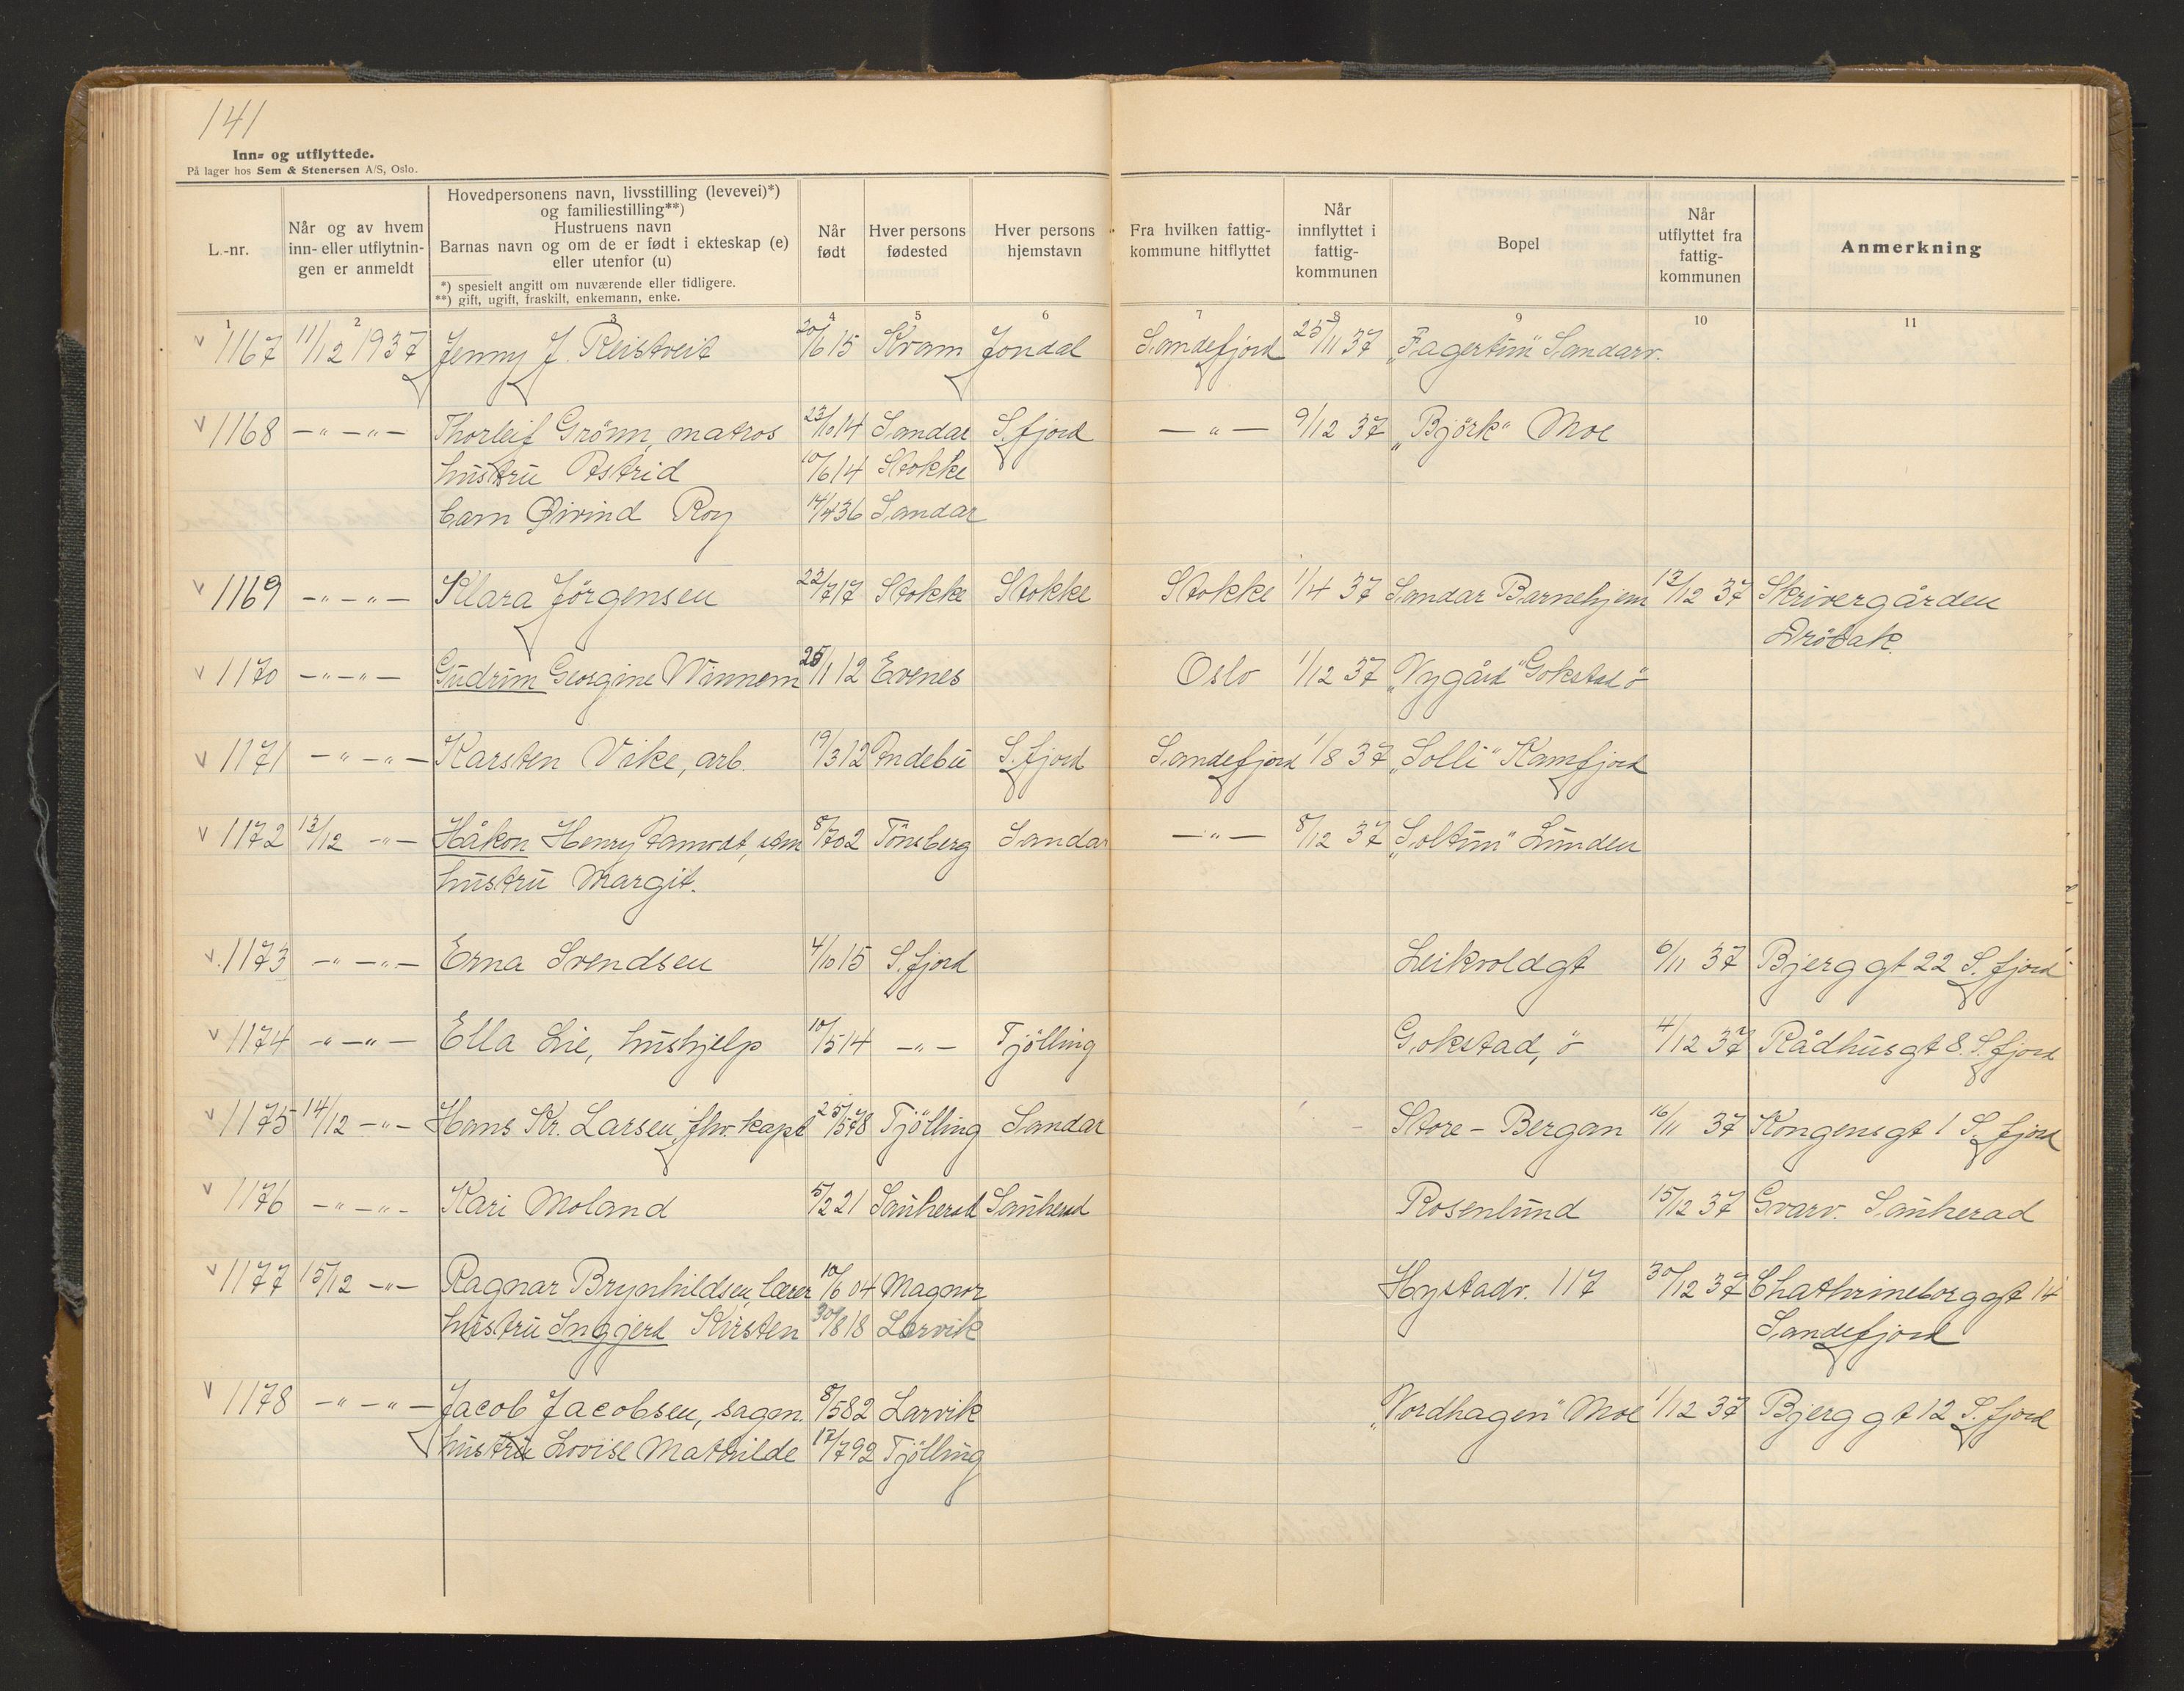 141
Inn- og utflyttede.
På lager hos Sem & Stenersen A/S, Oslo.
L.-nr.
Når og av hvem inn- eller utflytningen er anmeldt
Hovedpersonens navn, livsstilling (levevei)*)
og familiestilling**)
Hustruens navn
Barnas navn og om de er født i ekteskap (e)
eller utenfor (u)
*) spesielt angitt om nuværende eller tidligere.
**) gift, ugift, fraskilt, enkemann, enke.
Når født
Hver persons fødested
Hver persons hjemstavn
Fra hvilken fattigkommune hitflyttet
Når innflyttet i fattigkommunen
Bopel
Når utflyttet fra fattigkommunen
Anmerkning
1 2 3 4 5 6 7 8 9 10 11
v 1167 11/12 1937 Jenny J. Reistveit 20/6 15 Kvam Jondal Sandefjord 25/11 37 „Fagertun" Sandarv.
v 1168 -"- -"- Thorleif Grönn, matros 23/10 14 Sandar S.fjord -"- 9/12 37 „Björk" Moe
hustru Astrid 10/6 14 Stokke
barn Øivind Roy 14/4 36 Sandar
v 1169 -"- -"- Klara Jörgensen 22/7 17 Stokke Stokke Stokke 1/4 37 Sandar Barnehjem 13/12 37 Skrivergården
Dröbak.
v 1170 -"- -"- Gudrun Georgine Winnem 25/1 12 Evenes Oslo 1/12 37 „Nygård" Gokstad ö
v 1171 -"- -"- Karsten Vike, arb. 19/3 12 Andebu S.fjord Sandefjord 1/8 37 „Solli" Kamfjord
v 1172 13/12 -"- Håkon Henry Aamodt, 8/7 02 Tönsberg Sandar -"- 8/12 37 „Soltun" Lunden
hustru Margit.
v 1173 -"- -"- Erna Svendsen 4/10 15 S.fjord Leikvoldgt 6/11 37 Bjerggt 22 S.fjord
v 1174 -"- -"- Ella Lie, hushjelp 10/5 14 -"- Tjölling Gokstad, ö 4/12 37 Rådhusgt 8. S.fjord
v 1175 14/12 -"- Hans Kr. Larsen, fhv. kapt 25/5 78 Tjölling Sandar Store-Bergan 16/11 37 Kongensgt 1 S.fjord
v 1176 -"- -"- Kari Moland 5/2 21 Sauherad Sauherad Rosenlund 15/12 37 Gvarv. Sauherad
v 1177 15/12 -"- Ragnar Brynhildsen, lærer 10/6 04 Magnor Hystadv. 117 30/12 37 Chathrineborggt 14
hustru Inggjerd Kirsten 30/8 18 Larvik Sandefjord
v 1178 -"- -"- Jacob Jacobsen, sagm. 8/5 82 Larvik „Nordhagen" Moe 1/12 37 Bjerggt 12 S.fjord
hustru Lovise Mathilde 17/7 92 Tjölling